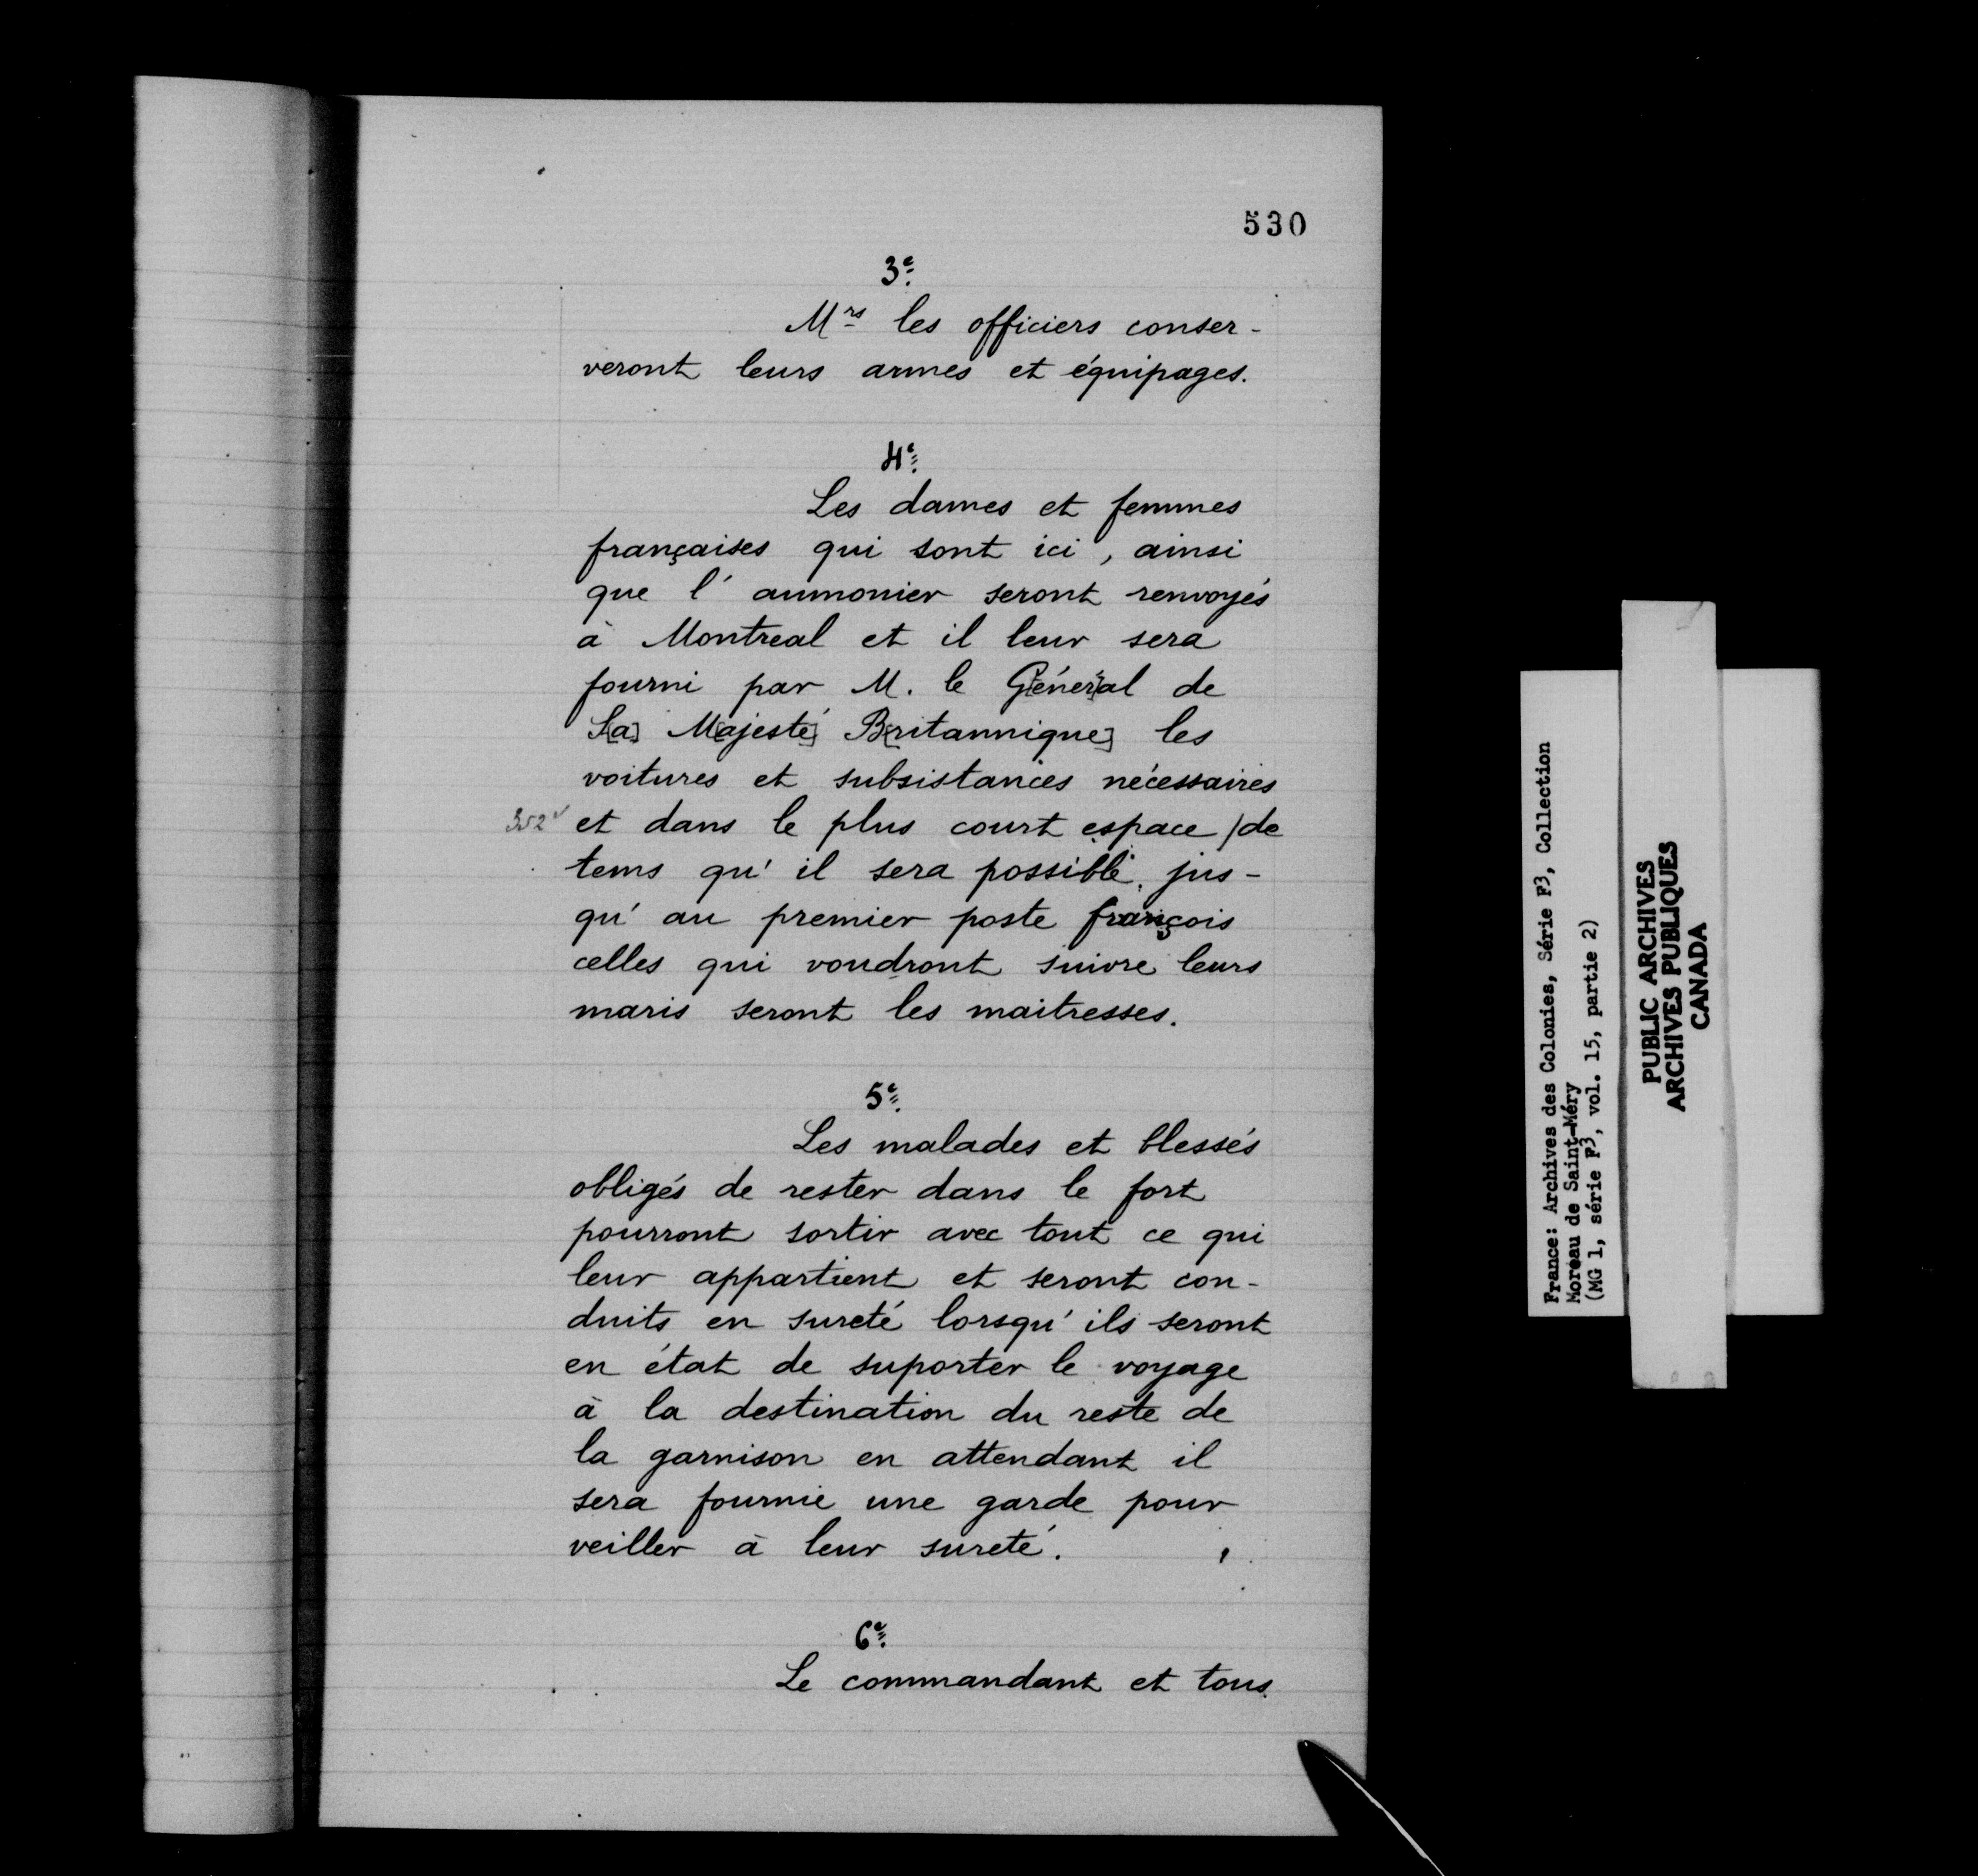 530
3e
Mrs les officiers conser-
veront leurs armes et équipages.
4e
Les dames et femmes
françaises qui sont ici, ainsi
que l'aumonier seront renvoyés
à Montreal et il leur sera
fourni par M. le G[éner]al de
S[a] M[ajesté] B[ritannique] les
voitures et subsistances nécessaires
352v et dans le plus court espace /de
tems qu'il sera possible, jus-
qu'au premier poste françois
celles qui voudront suivre leurs
maris seront les maitresses.
5e
Les malades et blessés
obligés de rester dans le fort
pourront sortir avec tout ce qui
leur appartient et seront con-
duits en sureté lorsqu'ils seront
en état de suporter le voyage
à la destination du reste de
la garnison en attendant il
sera fournie une garde pour
veiller à leur sureté.
6e
Le commandant et tous
France: Archives des Colonies, Série F3, Collection
Moreau de Saint-Méry
(MG 1, série F3, vol. 15, partie 2)
PUBLIC ARCHIVES
ARCHIVES PUBLIQUES
CANADA